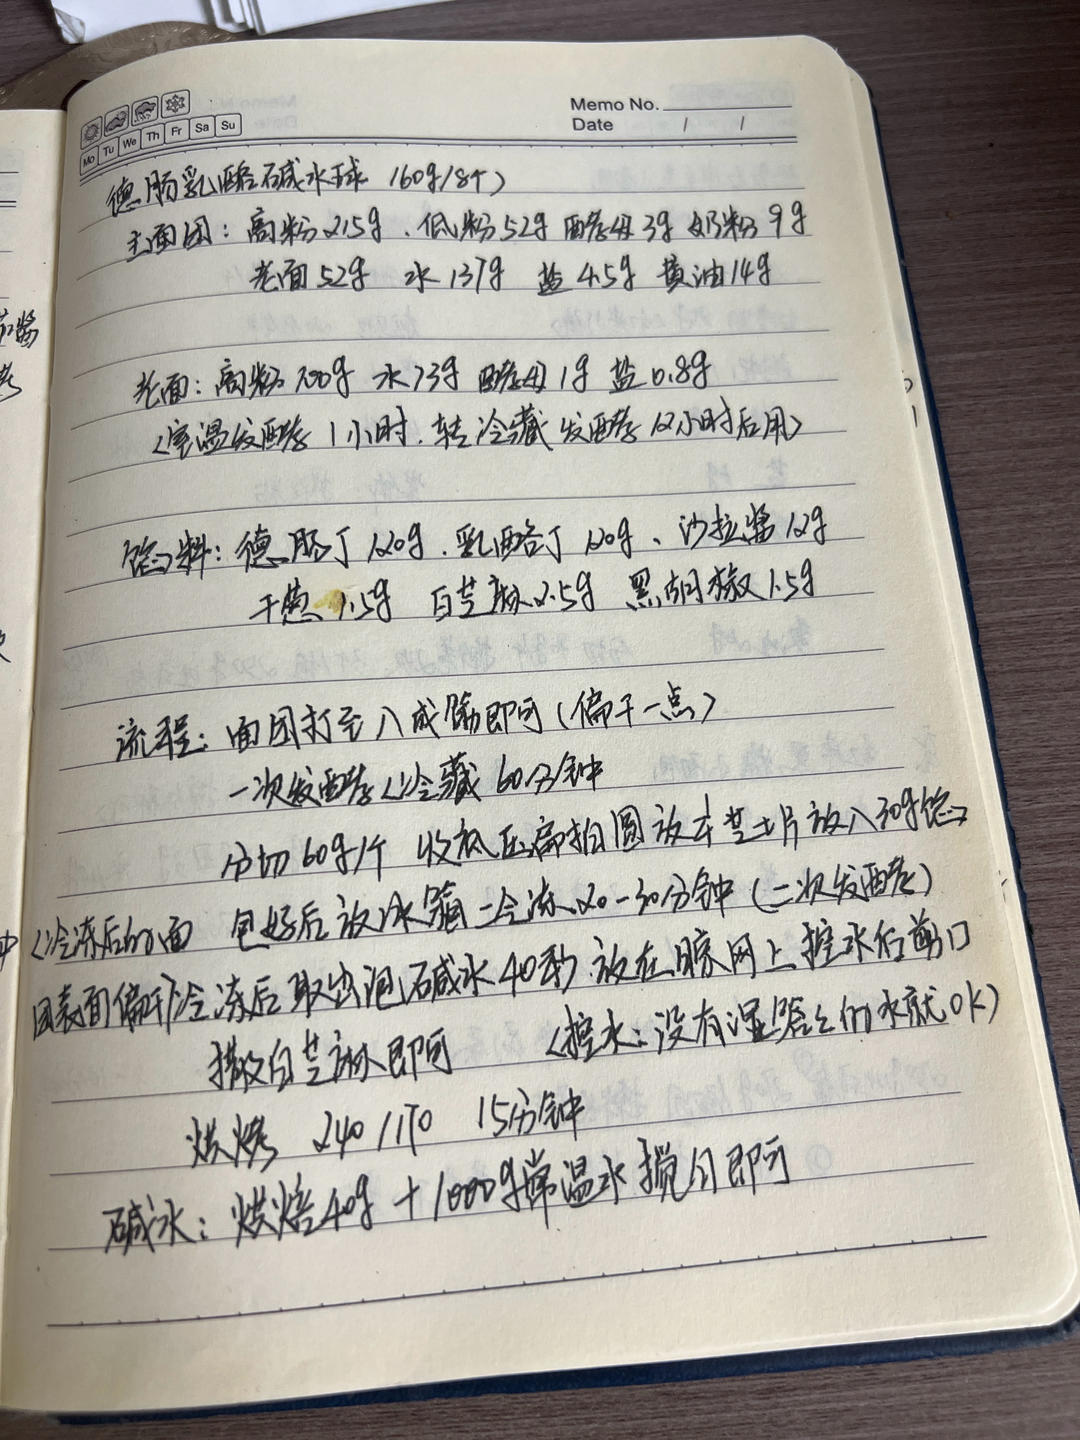 Memo No.
Date / /
Mo Tu We Th Fr Sa Su
德肠乳酪碱水球 (60g/8个)
主面团：高粉215g、低粉52g 酵母3g 奶粉9g
老面52g 水137g 盐4.5g 黄油14g
老面：高粉100g 水73g 酵母1g 盐0.8g
(室温发酵1小时.转冷藏发酵12小时后用)
馅料：德肠丁120g、乳酪丁120g、沙拉酱12g
干葱1.5g 白芝麻2.5g 黑胡椒1.5g
流程：面团打至八成筋即可(偏干一点)
一次发酵(冷藏60分钟
分切60g/个 收紧压扁拍圆放半芝士片放入30g馅
(冷冻后的面 包好后放冰箱冷冻20-30分钟(二次发酵)
团表面偏干)冷冻后取出泡碱水40秒 放在晾网上控水后剪口
撒白芝麻即可 (控水：没有湿哒哒的水就OK)
烘烤 240/170 15分钟
碱水：烘焙40g+1000g常温水搅匀即可